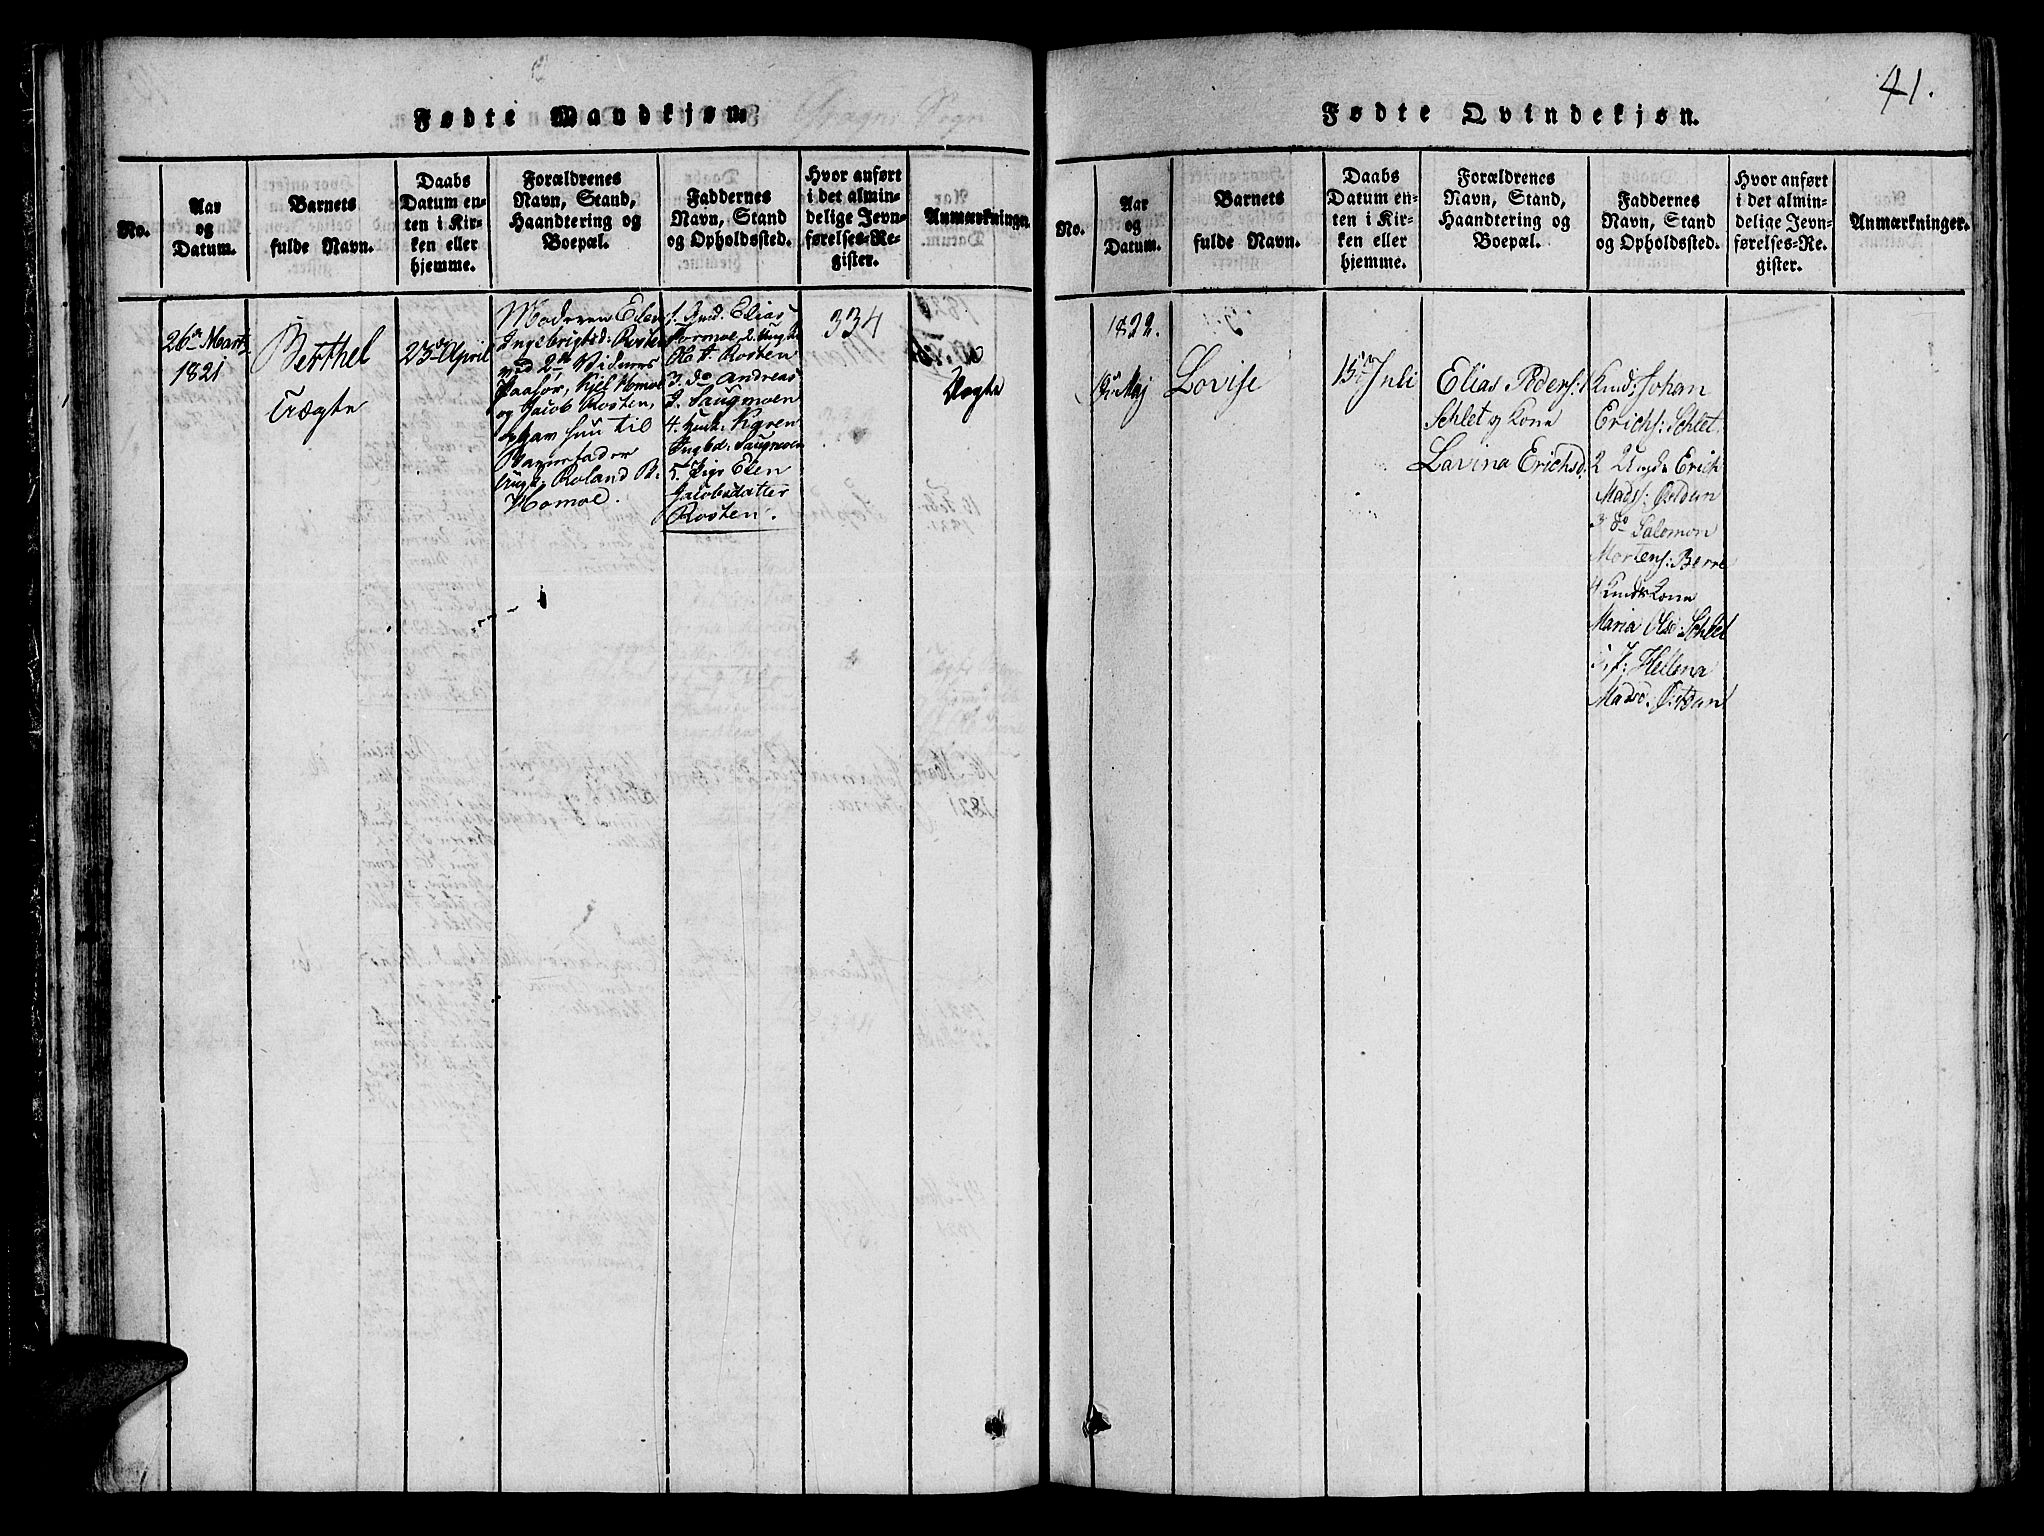 Fødte Mandkjøn.
Fragn: Sogn
No.
Aar
og
Datum.
Barnets
fulde Navn.
Daabs
Datum en-
ten i Kir-
ken eller
hjemme.
Forældrenes
Navn, Stand,
Haandtering og
Boepæl.
Faddernes
Navn, Stand
og Opholdssted.
Hvor anført
i det almin-
delige Jevn-
førelses-Re-
gister.
Anmærkninger.
26de Marts
1821
Berthel
23de April
Moderen Elen
Ingebrigtsd: Rosten
med 2de Vidners
Paasør, Kjel Homoe
og Jacob Rosten,
hun til
Barnefader
Roland B.
Homoe.
1. Gmd. Elias
2. Ungk.
Ol. A. Rosten
3. do Andreas
J. Saugmoen
4. Karen
Ingbd: Saugmoen
5. Pige Elen
Jacobsdatter
Rosten.
334
Uægte
41.
Fødte Qvindekjøn.
No.
Aar
og
Datum.
Barnets
fulde Navn.
Daabs
Datum en-
ten i Kir-
ken eller
hjemme.
Forældrenes
Navn, Stand,
Haandtering og
Boepæl.
Faddernes
Navn, Stand
og Opholdssted.
Hvor anført
i det almin-
delige Jevn-
førelses-Re-
gister.
Anmærkninger.
1822.
Maj
Lovise
15de Juli
Elias Peders:
Schlet og Kone
Lavina Erichsd.
Johan
Erichs: Schlet
2 Erich
Mads:
3 do Salomon
Mortens: Berre
4 Kone
Maria Olsd: Schlet
5, P: Hellena
Madsd: